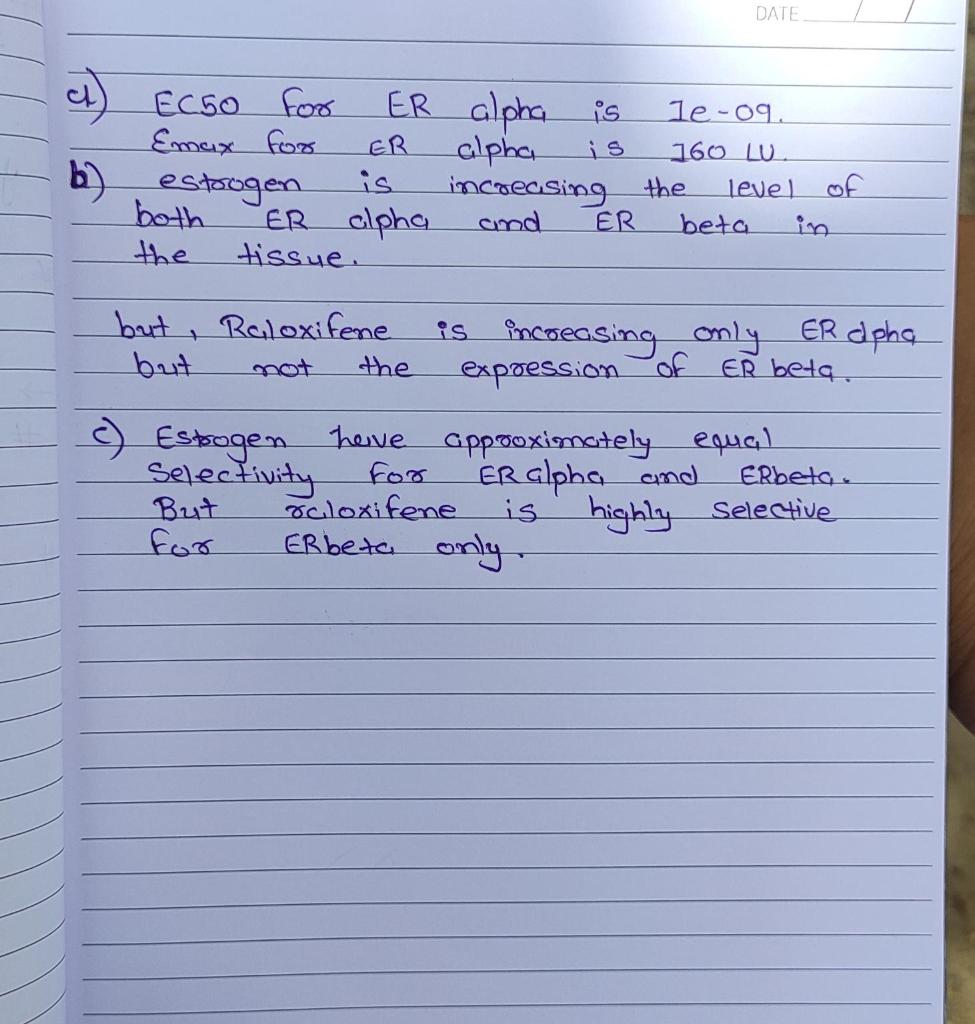 DATE / /
a) EC50 for ER alpha is 1e-09.
Emax for ER alpha is 160 LU.
b) estrogen is increasing the level of
both ER alpha and ER beta in
the tissue.
but, Raloxifene is increasing only ER alpha
but not the expression of ER beta.
c) Estrogen have approximately equal
Selectivity for ER alpha and ERbeta.
But raloxifene is highly selective
for ERbeta only.